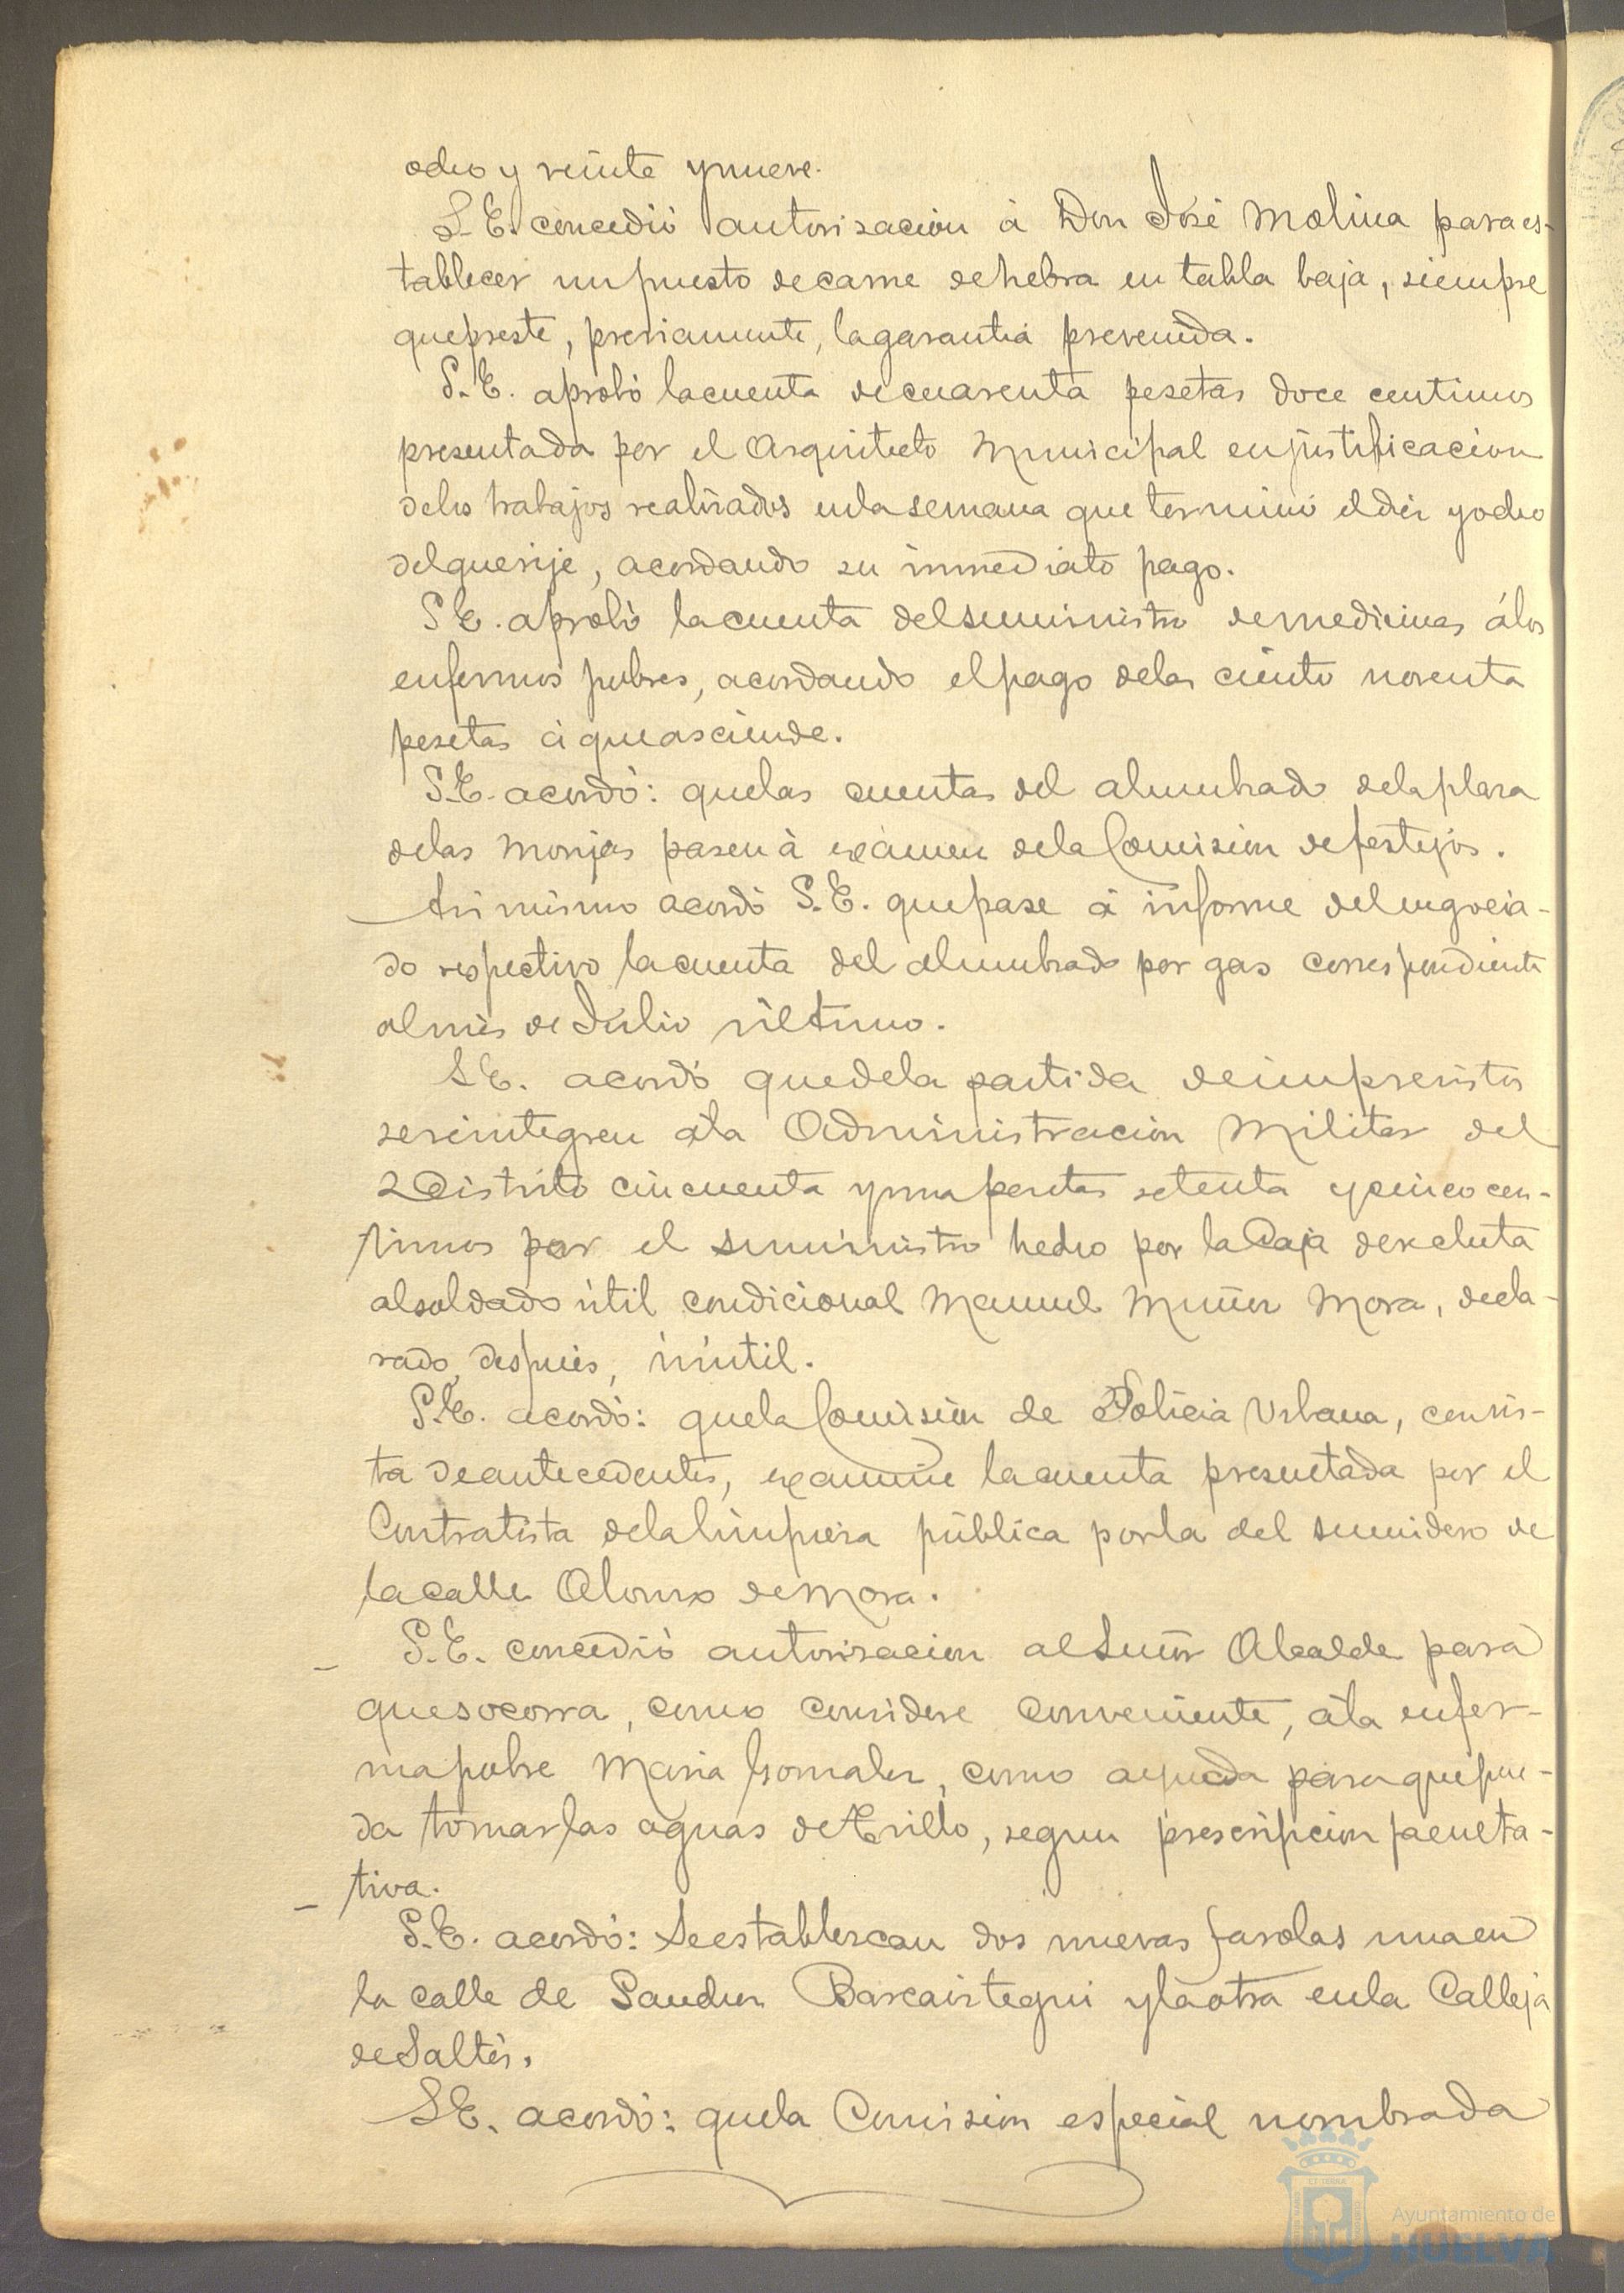 ocho y veinte y nueve.
S.E. concedió autorizacion á Don José Molina para es-
tablecer un puesto de carne de hebra en tabla baja, siempre
que preste, previamente, la garantia prevenida.
S.E. aprobó la cuenta de cuarenta pesetas doce centimos
presentada por el Arquitecto Municipal en justificacion
de los trabajos realizados en la semana que terminó el diez y ocho
del que rije, acordando su inmediato pago.
S.E. aprobó la cuenta del suministro de medicinas á los
enfermos pobres, acordando el pago de las ciento noventa
pesetas á que asciende.
S.E. acordó: que las cuentas del alumbrado de la plaza
de las Monjas pasen á exámen de la Comision de festejos.
Asi mismo acordó S.E. que pase á informe del negocia-
do respectivo la cuenta del alumbrado por gas correspondiente
al mes de Julio último.
S.E. acordó que de la partida de imprevistos
se reintegren á la Administracion Militar del
2 Distrito cincuenta y una pesetas setenta y cinco cen-
timos por el suministro hecho por la Caja de recluta
al soldado útil condicional Manuel Muñoz Mora, decla-
rado, despues, inútil.
S.E. acordó: que la Comision de Policia Urbana, con vis-
ta de antecedentes, examine la cuenta presentada por el
Contratista de la limpieza pública por la del sumidero de
la calle Alonso de Mora.
S.E. concedió autorizacion al Señor Alcalde para
que socorra, como considere conveniente, á la enfer-
ma pobre Maria Gonzalez, como ayuda para que pue-
da tomar las aguas de Trillo, segun prescripcion faculta-
tiva.
S.E. acordó: Se establezcan dos nuevas farolas una en
la calle de Sanchez Barcaiztegui y la otra en la Calleja
de Saltés.
S.E. acordó: que la Comision especial nombrada
Ayuntamiento de
HUELVA